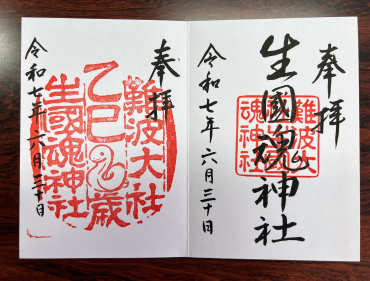 奉拝
生國魂神社
難波大社
生國魂神社
令和七年六月三十日
奉拝
難波大社
乙巳歳
生國魂神社
令和七年六月三十日